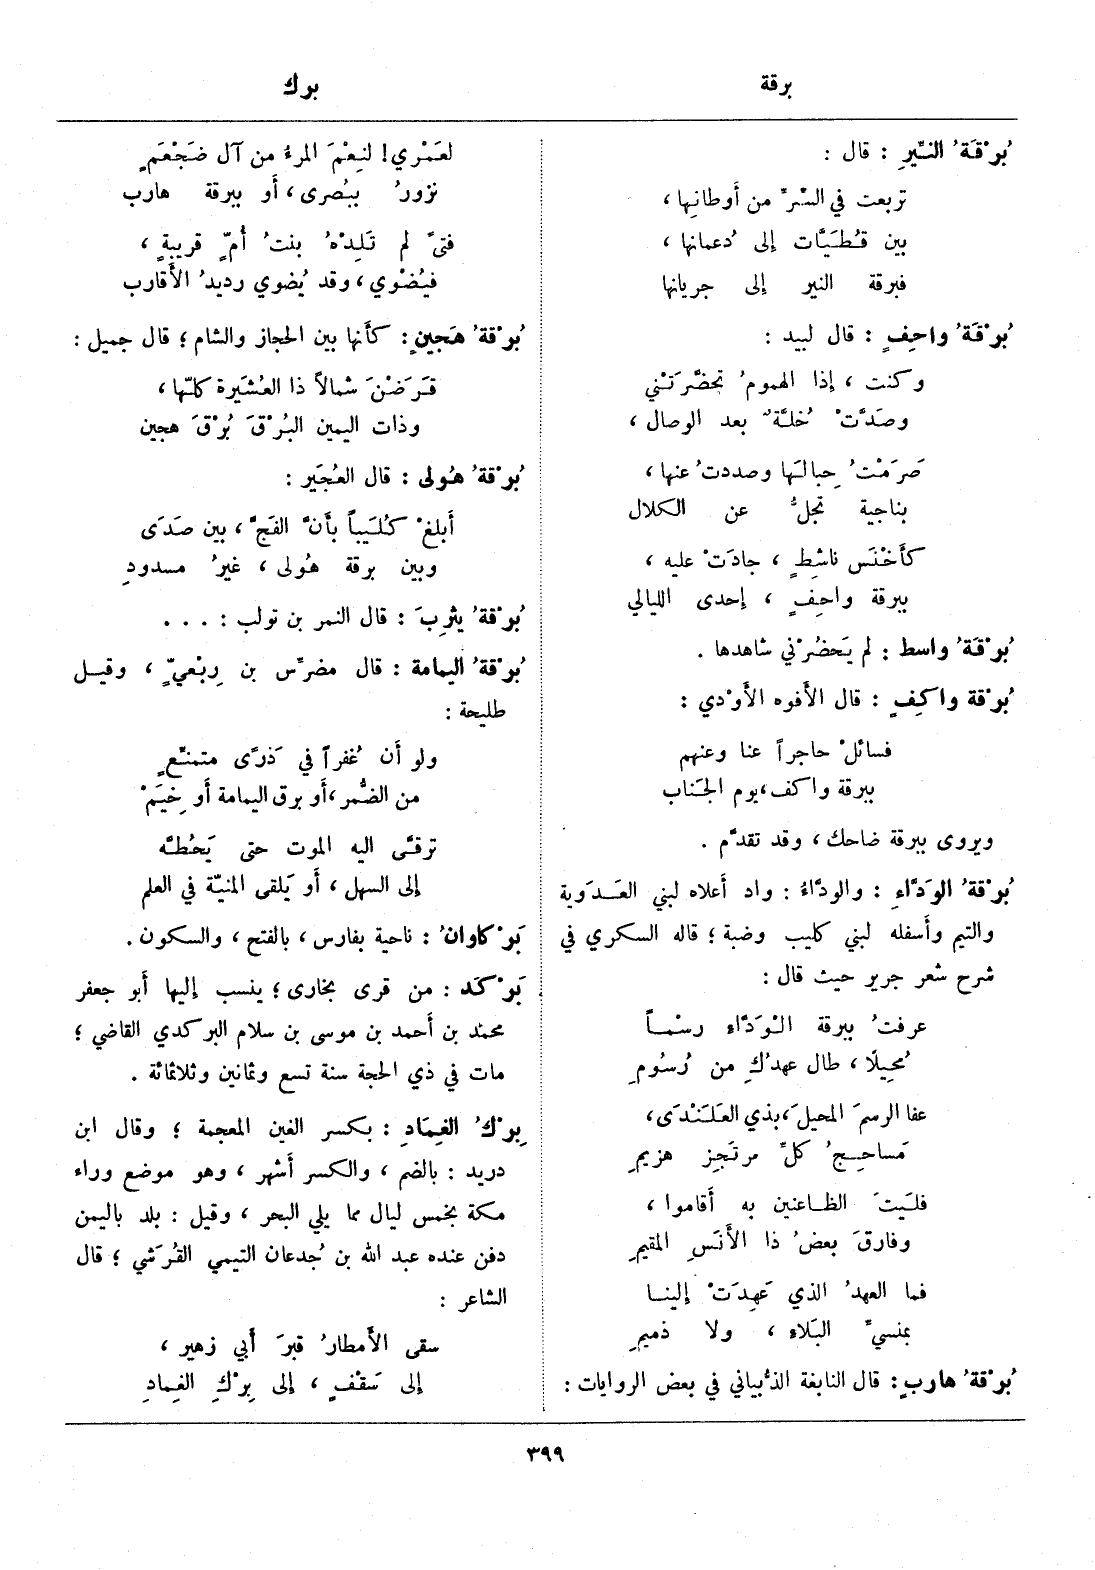 برقة
برك
بُرْقَةُ النِّيرِ : قال :
تربعت في السِّرِّ من أوطانِها ،
بين قُطَيَّات إلى دُعمانها ،
فبرقة النير إلى جريانها
بُرْقَةُ واحِفٍ : قال لبيد :
وكنت ، إذا الهمومُ تحضَّرَتْني
وصَدَّتْ خُلَّةٌ بعد الوصال ،
صَرَمْتُ حِبالَها وصددتُ عنها ،
بناجية تجلُّ عن الكلال
كأخْنَس ناشِطٍ ، جادَتْ عليه ،
ببرقة واحِفٍ ، إحدى الليالي
بُرْقَةُ واسط : لم يَحضُرْني شاهدها .
بُرْقة واكِفٍ : قال الأفوه الأوْدي :
فسائلْ حاجراً عنا وعنهم
ببرقة واكف، يوم الجَناب
ويروى ببرقة ضاحك ، وقد تقدَّم .
بُرْقةُ الوَدَّاءِ : والودَّاءُ : واد أعلاه لبني العَدَوية
والتيم وأسفله لبني كليب وضبة ؛ قاله السكري في
شرح شعر جرير حيث قال :
عرفتُ ببرقة الْوَدَّاءِ رسْماً
مُحِيلًا ، طال عهدُكِ من رُسُومِ
عفا الرسمَ المحيلَ، بذي العَلَنْدَى،
مَساحِيجُ كلِّ مرتَجِز هزيمِ
فلَيتَ الظاعنين به أقاموا ،
وفارقَ بعضُ ذا الأنَسِ المقيمِ
فما العهدُ الذي عَهِدَتْ إلينا
بمنسيِّ البَلاءِ ، ولا ذميمِ
بُرْقةُ هاربٍ : قال النابغة الذُّبياني في بعض الروايات :
لعَمْري! لنِعْمَ المرءُ من آل ضَجْعَمٍ
نزورُ ببُصرى ، أو ببرقة هارب
فتىً لم تَلِدْهُ بنتُ أُمٍّ قريبةٍ ،
فيُضْوي ، وقد يُضوي رديدُ الأقارب
بُرْقةُ هَجينٍ : كأنها بين الحجاز والشام ؛ قال جميل :
قَرَضْنَ شمالاً ذا العُشَيرة كلّها ،
وذات اليمين البُرْقَ بُرْقَ هجين
بُرْقةُ هُولى : قال العُجَير :
أبلغْ كُلَيباً بأنَّ الفَجَّ ، بين صَدَى
وبين برقة هُولى ، غيرُ مسدودِ
بُرْقةُ يثرِبَ : قال النمر بن تولب : . . .
بُرْقةُ اليمامة : قال مضرِّس بن رِبْعيٍّ ، وقيل
طليحة :
ولو أن غُفراً في ذَرًى متمنّعٍ
من الضُّمر ، أو برق اليمامة أو خِيَمْ
ترقَّى اليه الموت حتى يَحُطَّه
إلى السهل ، أو يَلقى المنيّة في العلم
بَرْكاوانُ : ناحية بفارس ، بالفتح ، والسكون .
بَرْكَد : من قرى بخارى ؛ ينسب إليها أبو جعفر
محمد بن أحمد بن موسى بن سلام البركدي القاضي ؛
مات في ذي الحجة سنة تسع وثمانين وثلاثمائة .
بِرْكُ الغِمَادِ : بكسر الغين المعجمة ؛ وقال ابن
دريد : بالضم ، والكسر أشهر ، وهو موضع وراء
مكة بخمس ليال مما يلي البحر ، وقيل : بلد باليمن
دفن عنده عبد الله بن جُدعان التيمي القُرَشي ؛ قال
الشاعر :
سقى الأمطارُ قبرَ أبي زهير ،
إلى سَقْفٍ ، إلى بِرْكِ الغِمادِ
٣٩٩